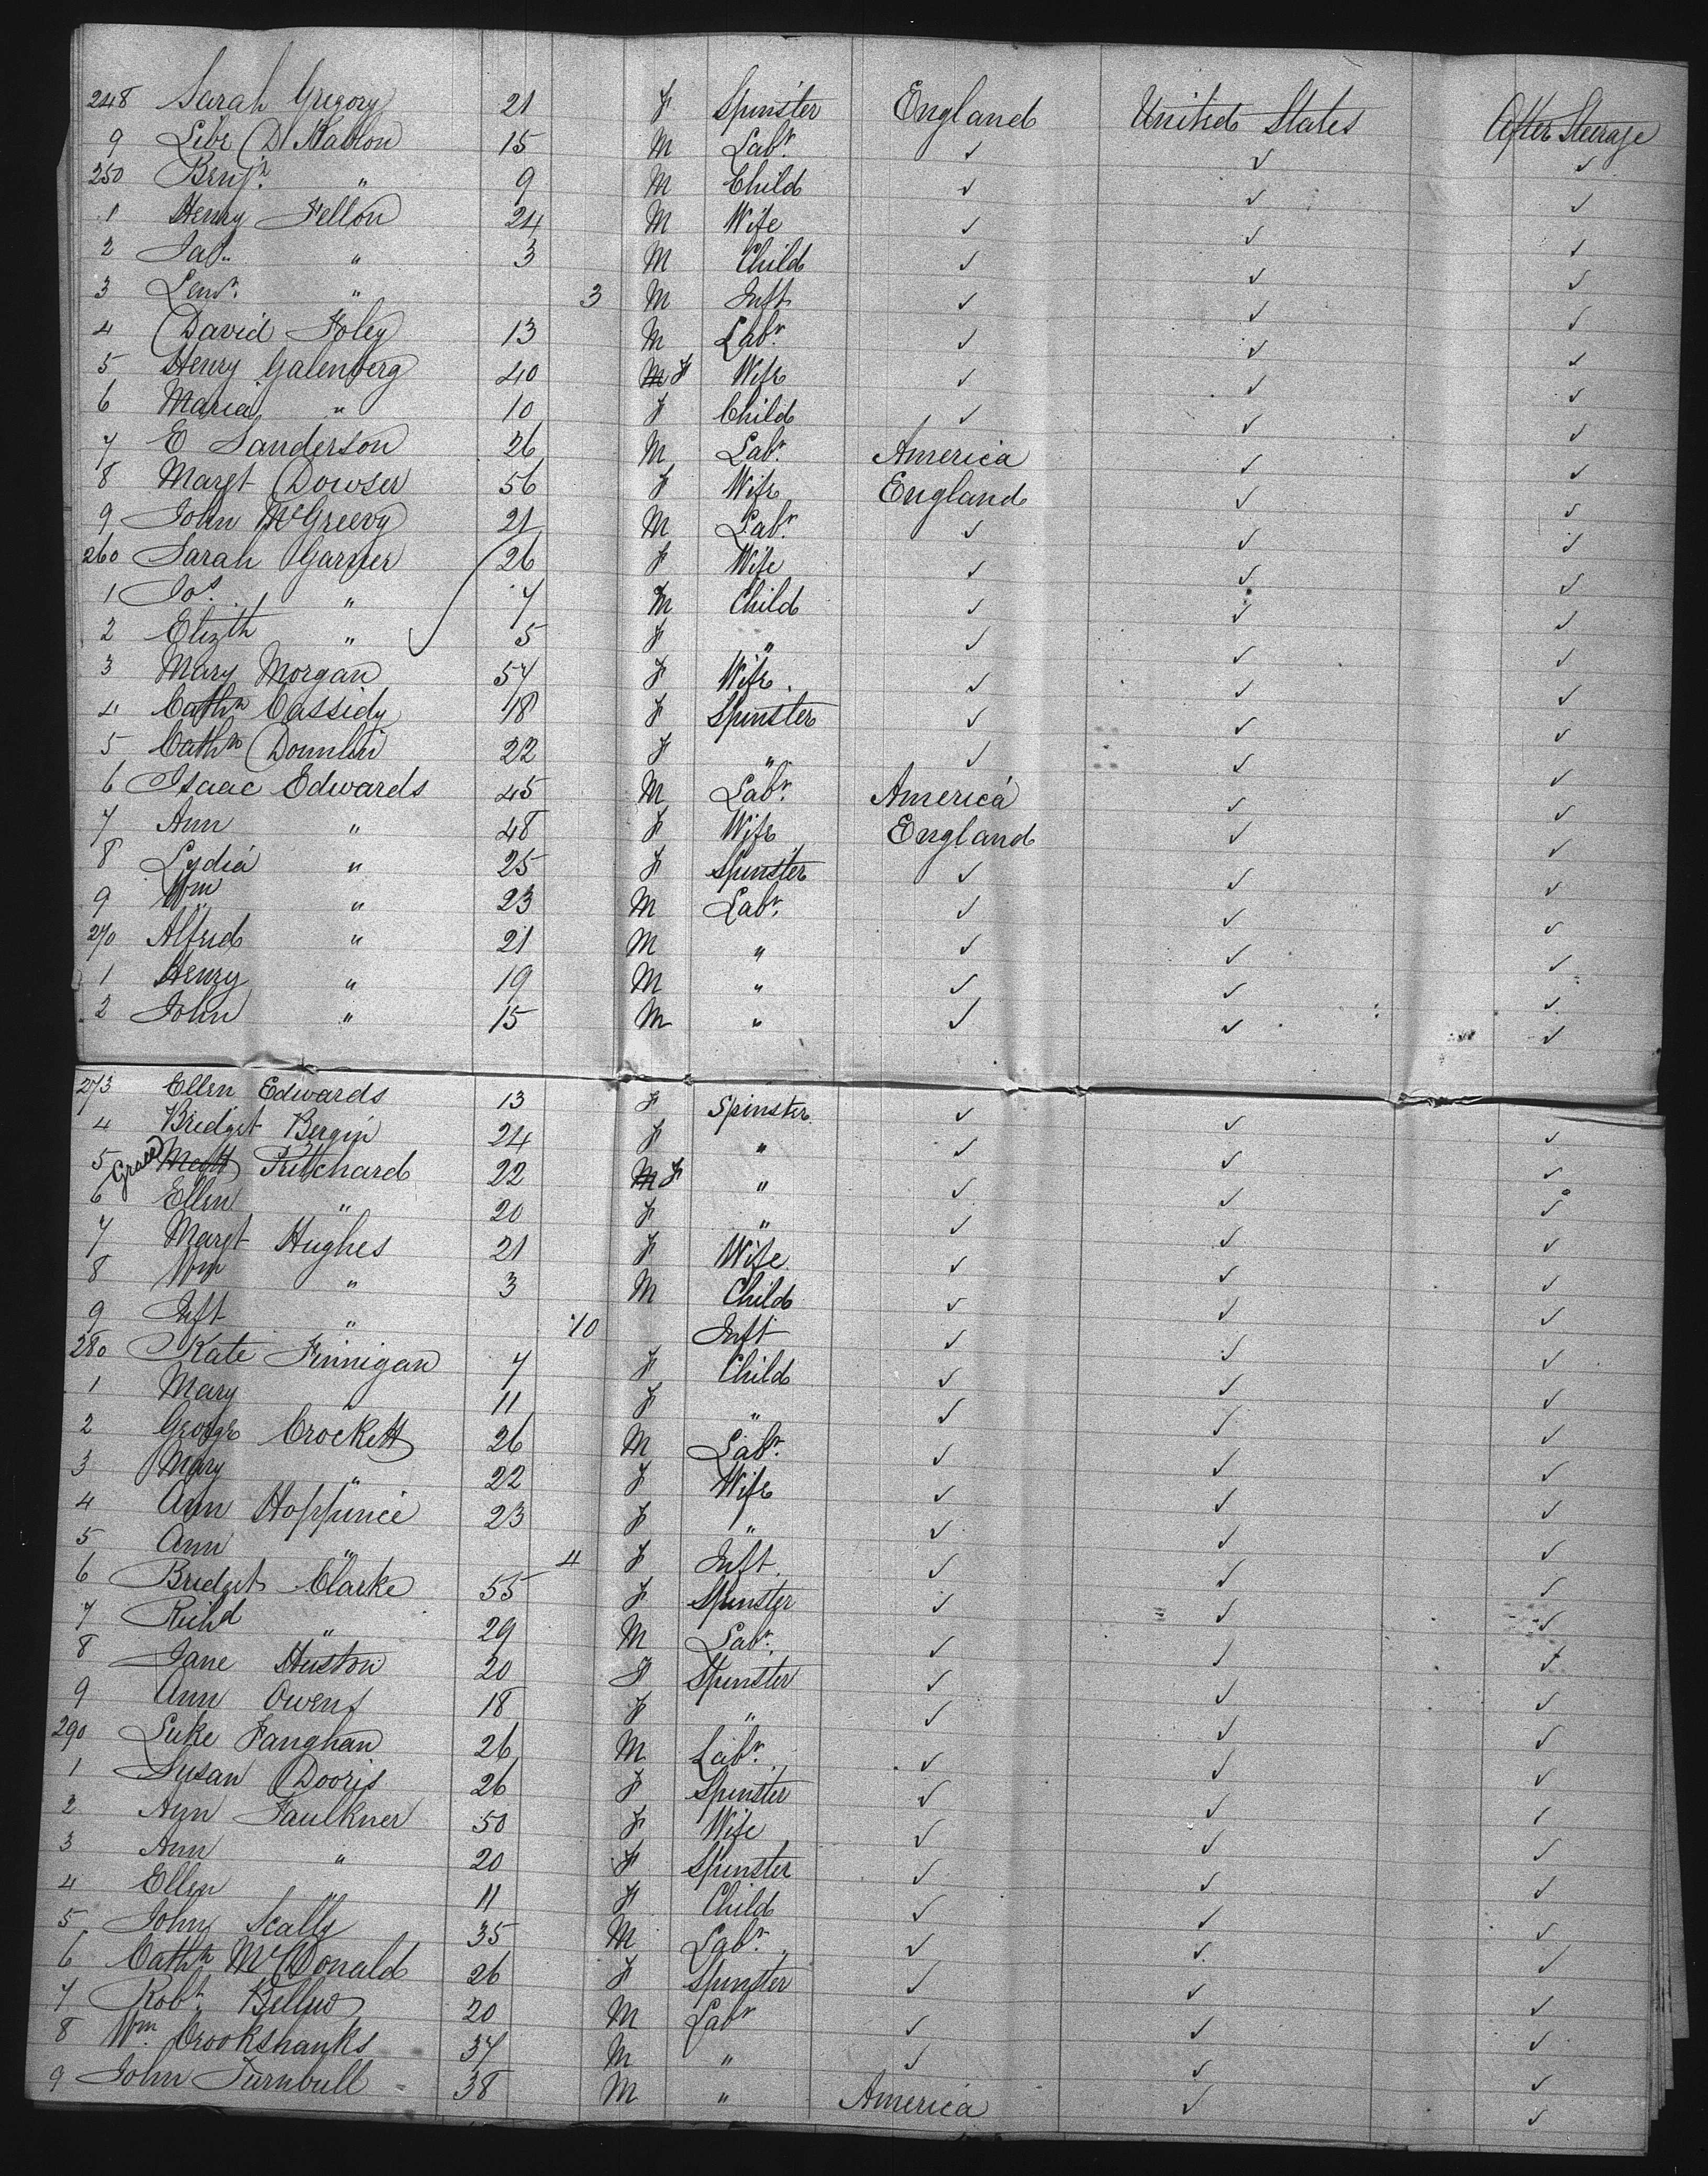 248 Sarah Gregory 21 F Spinster England United States After Steerage
9 Libe D Kablon 15 M Labr. ✓ ✓ ✓
250 Benjn. " 9 M Child ✓ ✓ ✓
1 Henry Fellon 24 M Wife ✓ ✓ ✓
2 Jas. " 3 M Child ✓ ✓ ✓
3 " 3 M Inft ✓ ✓ ✓
4 David Foley 13 M Labr. ✓ ✓ ✓
5 Henry Galenberg 40 M F Wife ✓ ✓ ✓
6 Maria " 10 F Child ✓ ✓ ✓
7 E Sanderson 26 M Labr. America ✓ ✓
8 Margt Dowser 56 F Wife England ✓ ✓
9 John McGreevy 21 M Labr. ✓ ✓ ✓
260 Sarah Garner 26 F Wife ✓ ✓ ✓
1 Jos. " 7 M Child ✓ ✓ ✓
2 Elizth " 5 F " ✓ ✓ ✓
3 Mary Morgan 57 F Wife ✓ ✓ ✓
4 Cathn Cassidy 18 F Spinster ✓ ✓ ✓
5 Cathn 22 F " ✓ ✓ ✓
6 Isaac Edwards 45 M Labr. America ✓ ✓
7 Ann " 48 F Wife England ✓ ✓
8 Lydia " 25 F Spinster ✓ ✓ ✓
9 Wm " 23 M Labr. ✓ ✓ ✓
270 Alfred " 21 M " ✓ ✓ ✓
1 Henry " 19 M " ✓ ✓ ✓
2 John " 15 M " ✓ ✓ ✓
273 Ellen Edwards 13 F Spinster ✓ ✓ ✓
4 Bridget Bergin 24 F " ✓ ✓ ✓
5 Grace Matt Pritchard 22 M F " ✓ ✓ ✓
6 Ellen " 20 F " ✓ ✓ ✓
7 Margt Hughes 21 F Wife ✓ ✓ ✓
8 Wm " 3 M Child ✓ ✓ ✓
9 Inft " 10 Inft ✓ ✓ ✓
280 Kate Finnigan 7 F Child ✓ ✓ ✓
1 Mary " 11 F " ✓ ✓ ✓
2 George Crockett 26 M Labr. ✓ ✓ ✓
3 Mary " 22 F Wife ✓ ✓ ✓
4 Ann Hoppince 23 F " ✓ ✓ ✓
5 Ann " 4 F Inft. ✓ ✓ ✓
6 Bridget Clarke 55 F Spinster ✓ ✓ ✓
7 Richd " 29 M Labr. ✓ ✓ ✓
8 Jane Huston 20 F Spinster ✓ ✓ ✓
9 Ann Owens 18 F " ✓ ✓ ✓
290 Luke Fanghan 26 M Labr. ✓ ✓ ✓
1 Susan Dooris 26 F Spinster ✓ ✓ ✓
2 Ann Faulkner 50 F Wife ✓ ✓ ✓
3 Ann " 20 F Spinster ✓ ✓ ✓
4 Ellen " 11 F Child ✓ ✓ ✓
5 John Scally 35 M Labr. ✓ ✓ ✓
6 Cathn McDonald 26 F Spinster ✓ ✓ ✓
7 Robt. Bellew 20 M Labr ✓ ✓ ✓
8 Wm. Crookshanks 37 M " ✓ ✓ ✓
9 John Turnbull 38 M " America ✓ ✓